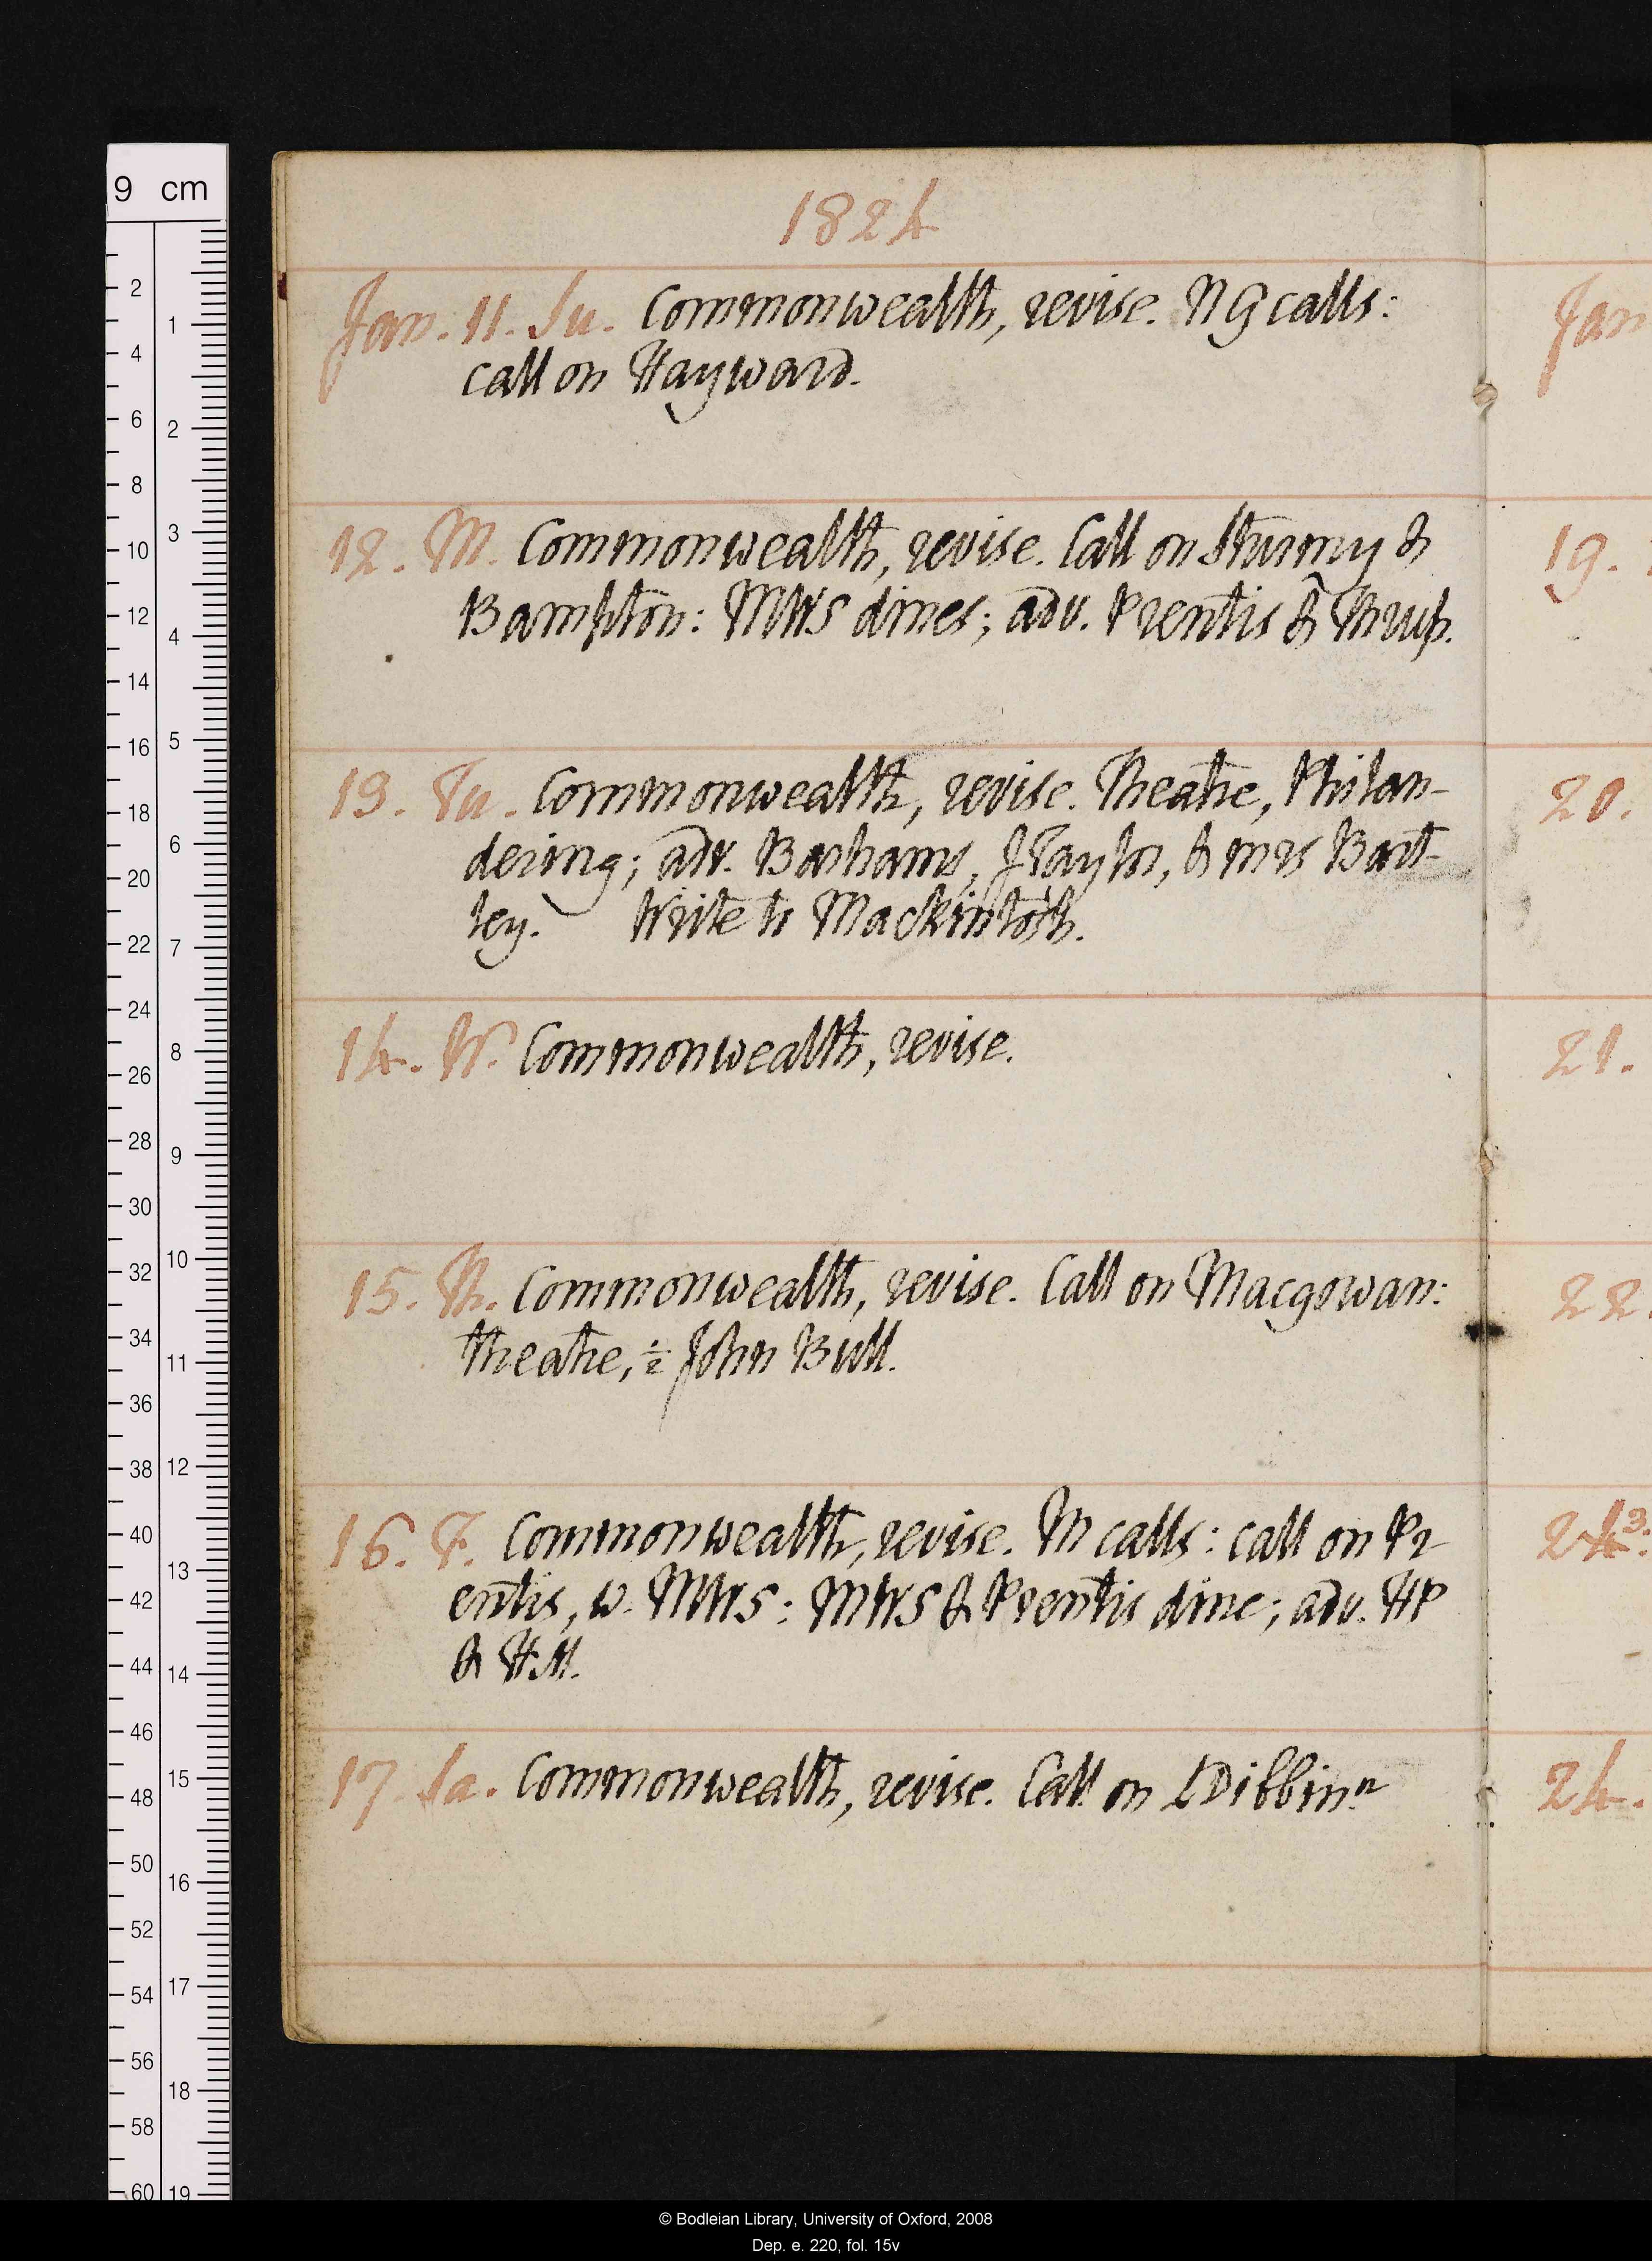 1824
Jan. 11. Su. Commonwealth, revise. N G calls:
call on Hayward.
12. M. Commonwealth, revise. Call on Sturmy &
Bampton: MWS dines; adv. Prentis & Thrup.
13. Tu. Commonwealth, revise. Theatre, Philan-
dering; adv. Barhams, J Taylor, & mrs Bart-
ley. Write to Mackintosh.
14. W. Commonwealth, revise.
15. Th. Commonwealth, revise. Call on Macgowan:
theatre, ½ John Bull.
16. F. Commonwealth, revise. M calls: call on Pr
entis, w. MWS: MWS & Prentis dine; adv. HP
& H.M.
17. Sa. Commonwealth, revise. Call on L Dibbin: n
Jan
19.
20.
21.
22.
243.
24.
9 cm
2
4
6
8
10
12
14
16
18
20
22
24
26
28
30
32
34
36
38
40
42
44
46
48
50
52
54
56
58
60
1
2
3
4
5
6
7
8
9
10
11
12
13
14
15
16
17
18
19
© Bodleian Library, University of Oxford, 2008
Dep. e. 220, fol. 15v